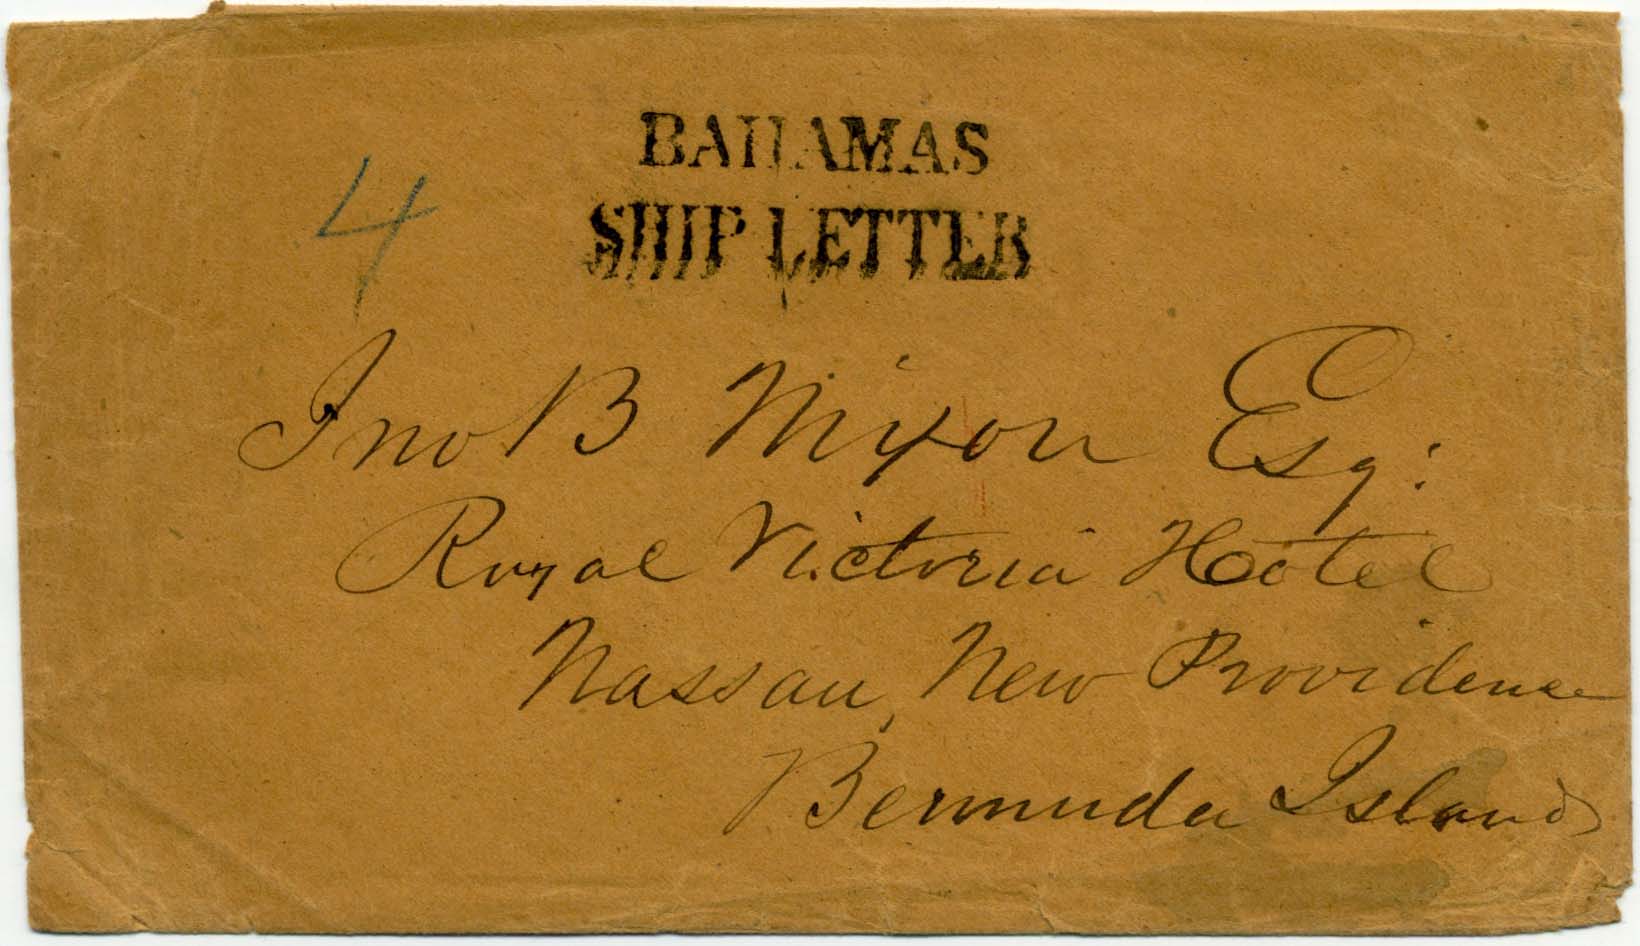 BAHAMAS
SHIP LETTER
4
Jno B Mixon Esq:
Royal Victoria Hotel
Nassau, New Providence
Bermuda Island